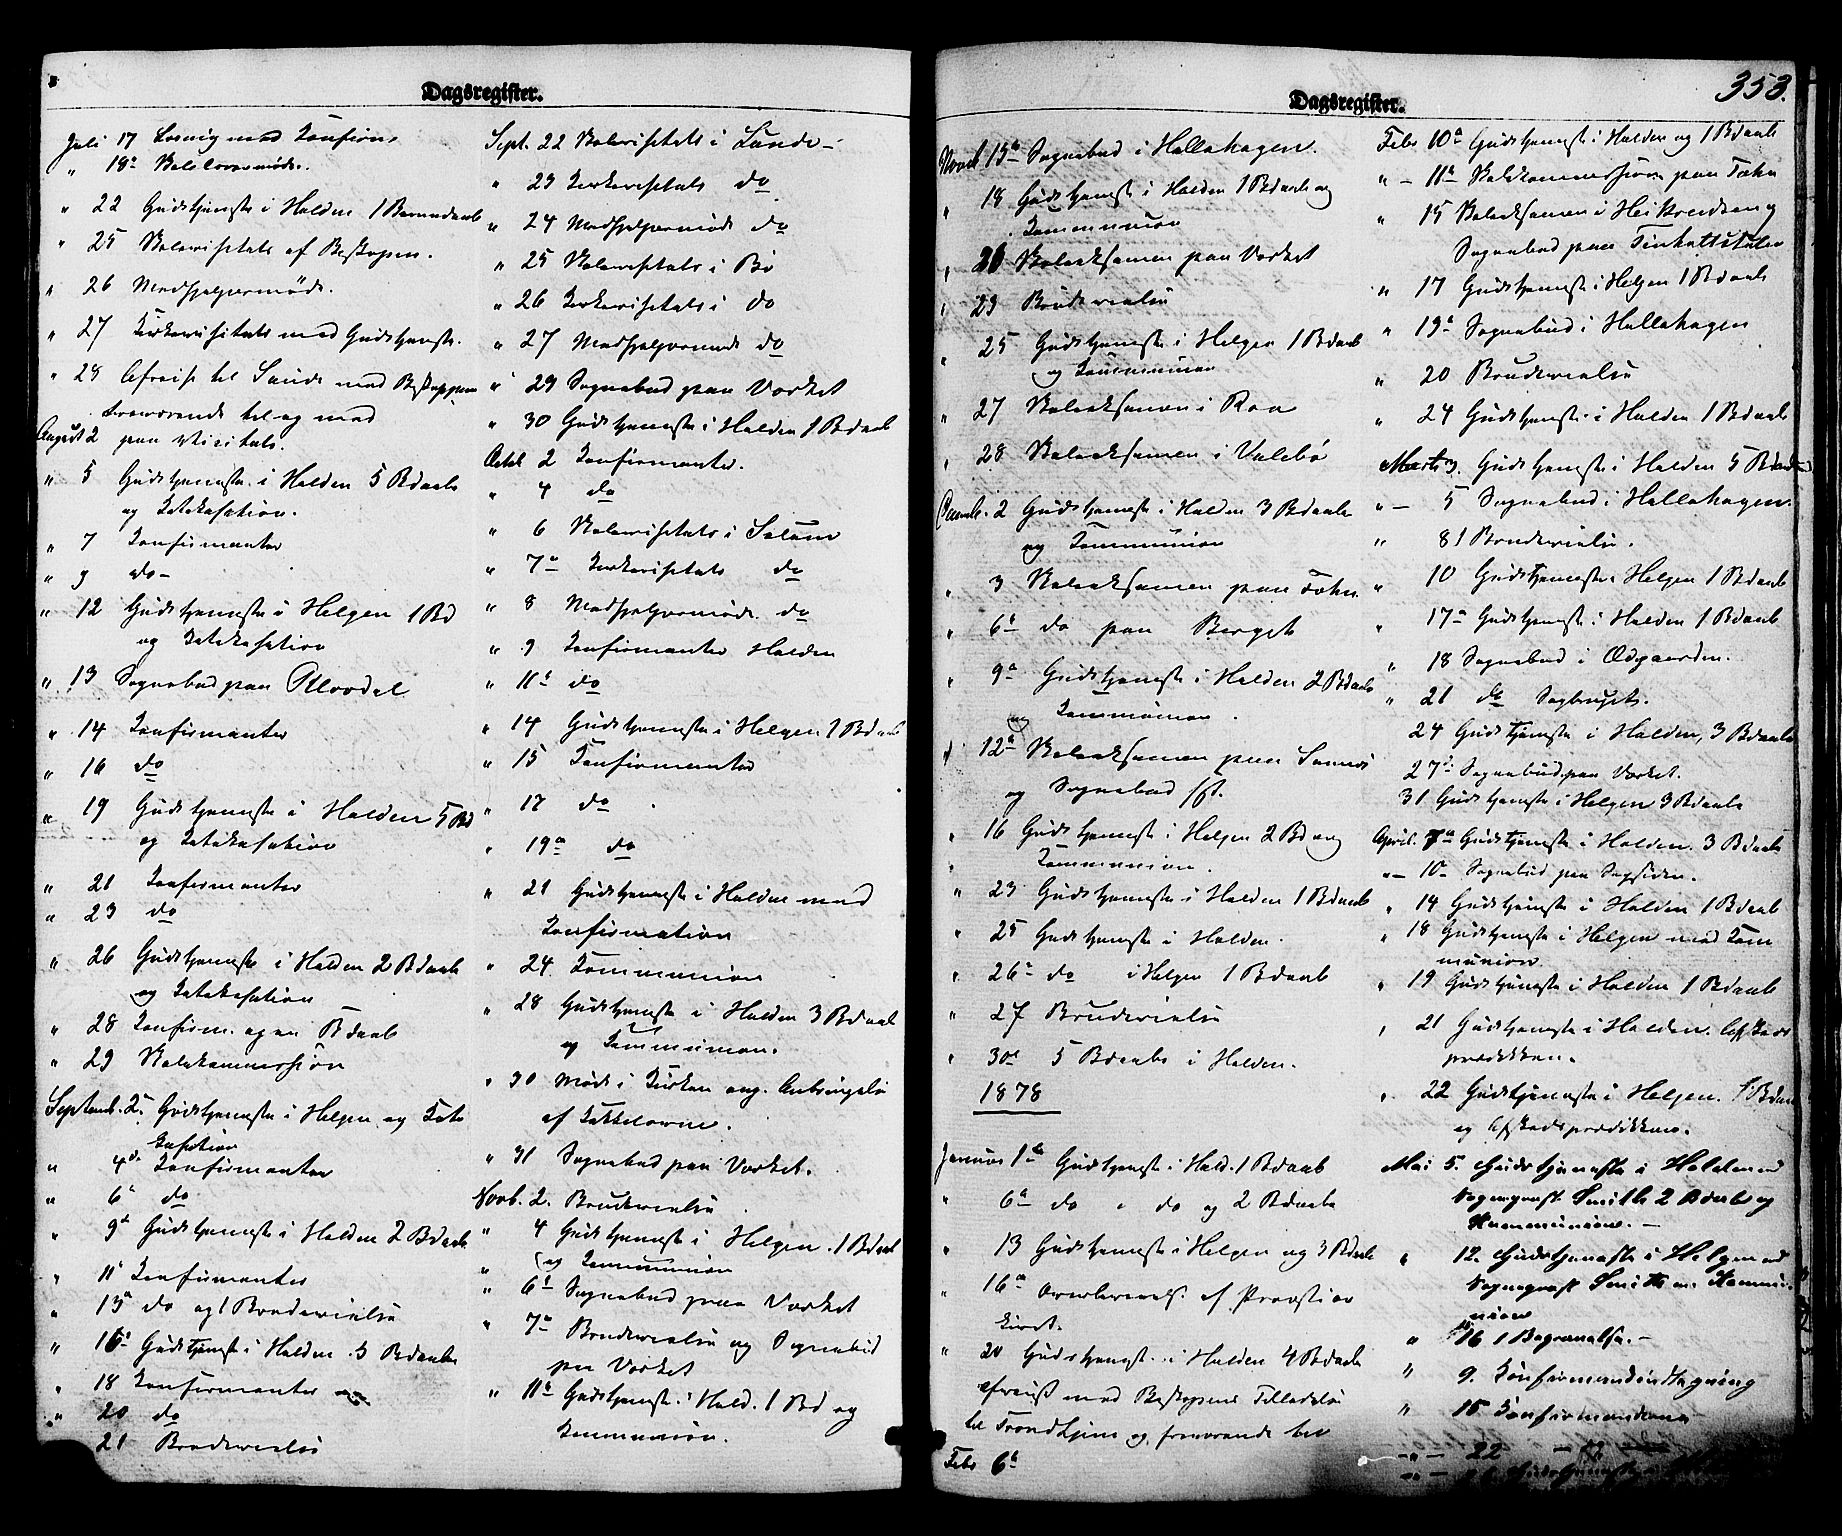 Dagsregister.
Juli 17 med Konfirm.
" 18de Skolelærermøde.
" 22 Gudstjeneste i Holden 1 Barnedaab
" 25 Skolevisitats af Biskopen.
" 26 Medhjælpermøde.
" 27 Kirkevisitats med Gudstjeneste.
" 28 Afreise til Saude med Biskoppen
fraværende til og med
August 2 paa Visitats.
" 5 Gudstjeneste i Holden 5 Bdaab
og Katekisation.
" 7 Konfirmanter
" 9 do
" 12 Gudstjeneste i Helgen 1 Bd
og Katekisation
" 13 Sognebud paa
" 14 Konfirmanter
" 16 do
" 19 Gudstjeneste i Holden 5 Bd
og Katekisation
" 21 Konfirmanter
" 23 do
" 26 Gudstjeneste i Holden 2 Bdaab
og Katekisation
" 28 Konfirm. og en Bdaab
" 29 Skolekommission
Septemb. 2. Gudstjeneste i Helgen og Kate
kisation
" 4de Konfirmanter
" 6te do
" 9de Gudstjeneste i Holden 2 Bdaab
" 11te Konfirmanter
" 13de do og 1 Brudevielse
" 16de Gudstjeneste i Holden 3 Bdaabe
" 18 Konfirmanter
" 20 do
21 Brudevielse
Sept. 22 Skolevisitats i Lunde
" 23 Kirkevisitats do
" 24 Medhjelpermøde do
" 25 Skolevisitats i Bø
" 26 Kirkevisitats i do
" 27 Medhjelpermøde do
" 29 Sognebud paa Værket
" 30 Gudstjeneste i Holden 1 Bdaab
Octob 2 Konfirmanter.
" 4 do
" 6 Skolevisitats i Solum
" 7de Kirkevisitats do
" 8 Medhjelpermøde do
" 9 Konfirmanter Holden
" 11te do
" 14 Gudstjeneste i Helgen 1 Bdaab
" 15 Konfirmanter
" 17 do
" 19de do
" 21 Gudstjeneste i Holden med
Konfirmation
" 24 Kommunion
" 28 Gudstjeneste i Holden 3 Bdaab
og Kommunion.
" 30 Møde i Kirken ang. Anbringelse
af Kakkelovne.
" 31 Sognebud paa Værket.
Novb. 2. Brudevielse
" 4 Gudstjeneste i Helgen. 1 Bdaab
" og Kommunion
" 6te Sognebud paa Værket
" 7de Brudevielse og Sognebud
paa Værket
" 11te Gudstjeneste i Hold. 1 Bd og
Kommunion.
353.
Dagsregister.
Novemb 15de Sognebud i Hellahagen.
" 18 Gudstjeneste i Holden 1 Bdaab og
Kommunion
" 20 Skoleeksamen paa Værket
" 23 Brudevielse
" 25 Gudstjeneste i Helgen 1 Bdaab
og Kommunion
" 27 Skoleeksamen i Raa
" 28 Skoleeksamen i Valebø
Decemb. 2 Gudstjeneste i Holden 3 Bdaabe
og Kommunion
" 3 Skoleeksamen paa Tæhn
" 6te do paa Berget
" 9de Gudstjeneste i Holden 2 Bdaab
og Kommunion.
" 12te Skoleeksamen paa
og Sognebud sst.
" 16 Gudstjeneste i Helgen 2 Bd og
Kommunion.
" 23 Gudstjeneste i Holden 1 Bdaab
" 25 Gudstjeneste i Holden.
" 26de do i Helgen 1 Bdaab
" 27 Brudevielse
" 30te 5 Bdaabe i Holden.
1878
Januar 1ste Gudstjeneste i Hold. 1 Bdaab
" 6te do i do og 2 Bdaabe
" 13 Gudstjeneste i Helgen og 3 Bdaab
" 16de Overleverelse af Provstiar
kivet.
" 20 Gudstjeneste i Holden 4 Bdaab
afreist med Biskopens Tilladelse
til Trondhjem og fraværende til
Febr 6te
Febr 10de Gudstjeneste i Holden og 1 Bdaab
" 11te Skolekommission paa Tæhn
" 15 Skoleeksamen i og
Sognebud paa
" 17 Gudstjeneste i Helgen 1 Bdaab
" 19de Sognebud i Hellahagen
" 20 Brudevielse
" 24 Gudstjeneste i Holden 1 Bdaab
Marts 3. Gudstjeneste i Holden 5 Bdaab
" 5 Sognebud i Hellahagen.
" 8 1 Brudevielse.
" 10 Gudstjeneste Helgen 1 Bdaab
" 17de Gudstjeneste i Holden 1 Bdaab
" 18 Sognebud i Ødgaarden.
" 21 do Sagbruget.
24 Gudstjeneste i Holden, 3 Bdaabe
27de Sognebud paa Værket.
31 Gudstjeneste i Helgen 3 Bdaabe
April. 7de Gudstjeneste i Holden. 3 Bdaabe
" 10de Sognebud paa
" 14 Gudstjeneste i Holden 1 Bdaab
" 18 Gudstjeneste i Helgen med Kom
munion
" 19 Gudstjeneste i Holden 1 Bdaab
" 21 Gudstjeneste i Holden. Afskeds
prædikken.
" 22 Gudstjeneste i Helgen. 1 Bdaab
og Afskedsprædikken.
Mai 5. Gudstjeneste i Holden ved
Sognepræst Smith 2 Bdaab og
Kommunion. —
" 12. Gudstjeneste i Helgen ved
Sognepræst Smith m. Kommu
nion
" 16 1 Begravelse. —
" 9. Konfirmandindtegning
" 15 Konfirmanderne
" 22